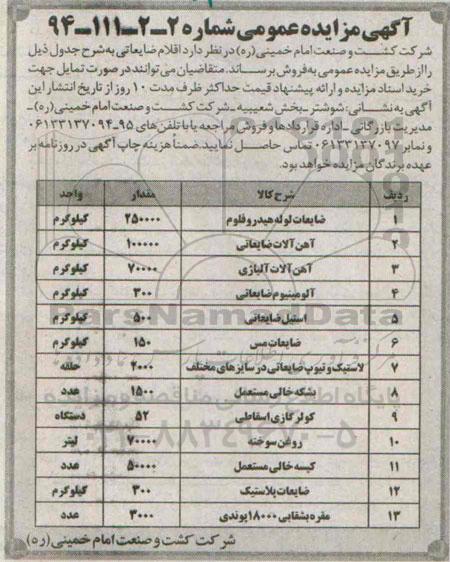 آگهی مزایده عمومی شماره ۲-۲-۱۱۱-۹۴
شرکت کشت و صنعت امام خمینی (ره) در نظر دارد اقلام ضایعاتی به شرح جدول ذیل
را از طریق مزایده عمومی به فروش برساند. متقاضیان می توانند در صورت تمایل جهت
خرید اسناد مزایده و ارائه پیشنهاد قیمت حداکثر ظرف مدت ۱۰ روز از تاریخ انتشار این
آگهی به نشانی: شوشتر-بخش شعیبیه-شرکت کشت و صنعت امام خمینی (ره)-
مدیریت بازرگانی-اداره قراردادها و فروش مراجعه یا با تلفن های ۹۵-۰۶۱۳۳۱۳۷۰۹۴
و نمابر ۰۶۱۳۳۱۳۷۰۹۷ تماس حاصل نمایید. ضمناً هزینه چاپ آگهی در روزنامه بر
عهده برندگان مزایده خواهد بود.
ردیف شرح کالا مقدار واحد
۱ ضایعات لوله هیدروفلوم ۲۵۰۰۰۰ کیلوگرم
۲ آهن آلات ضایعاتی ۱۰۰۰۰۰ کیلوگرم
۳ آهن آلات آلیاژی ۷۰۰۰۰ کیلوگرم
۴ آلومینیوم ضایعاتی ۳۰۰ کیلوگرم
۵ استیل ضایعاتی ۵۰۰ کیلوگرم
۶ ضایعات مس ۱۵۰ کیلوگرم
۷ لاستیک و تیوپ ضایعاتی در سایزهای مختلف ۲۰۰۰ حلقه
۸ بشکه خالی مستعمل ۱۵۰۰ عدد
۹ کولر گازی اسقاطی ۵۲ دستگاه
۱۰ روغن سوخته ۷۰۰۰۰ لیتر
۱۱ کیسه خالی مستعمل ۵۰۰۰۰ عدد
۱۲ ضایعات پلاستیک ۳۰۰ کیلوگرم
۱۳ مقره بشقابی ۱۸۰۰۰ پوندی ۳۰۰۰ عدد
شرکت کشت و صنعت امام خمینی (ره)
ParsNamadData
۰۲۱-۸۸۳۴۹۶۷۰-۵